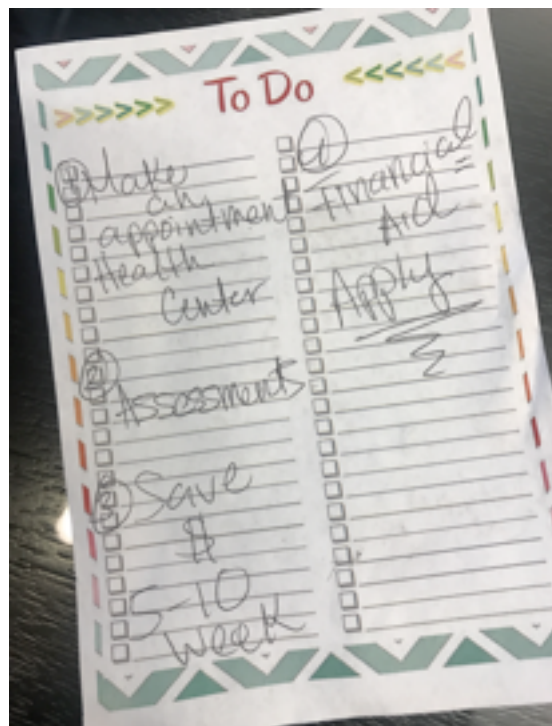 To Do
① Make
an
appointment
Health
Center
② Assessments
③ Save
$
5-10
week
④
Financial
Aid
Apply